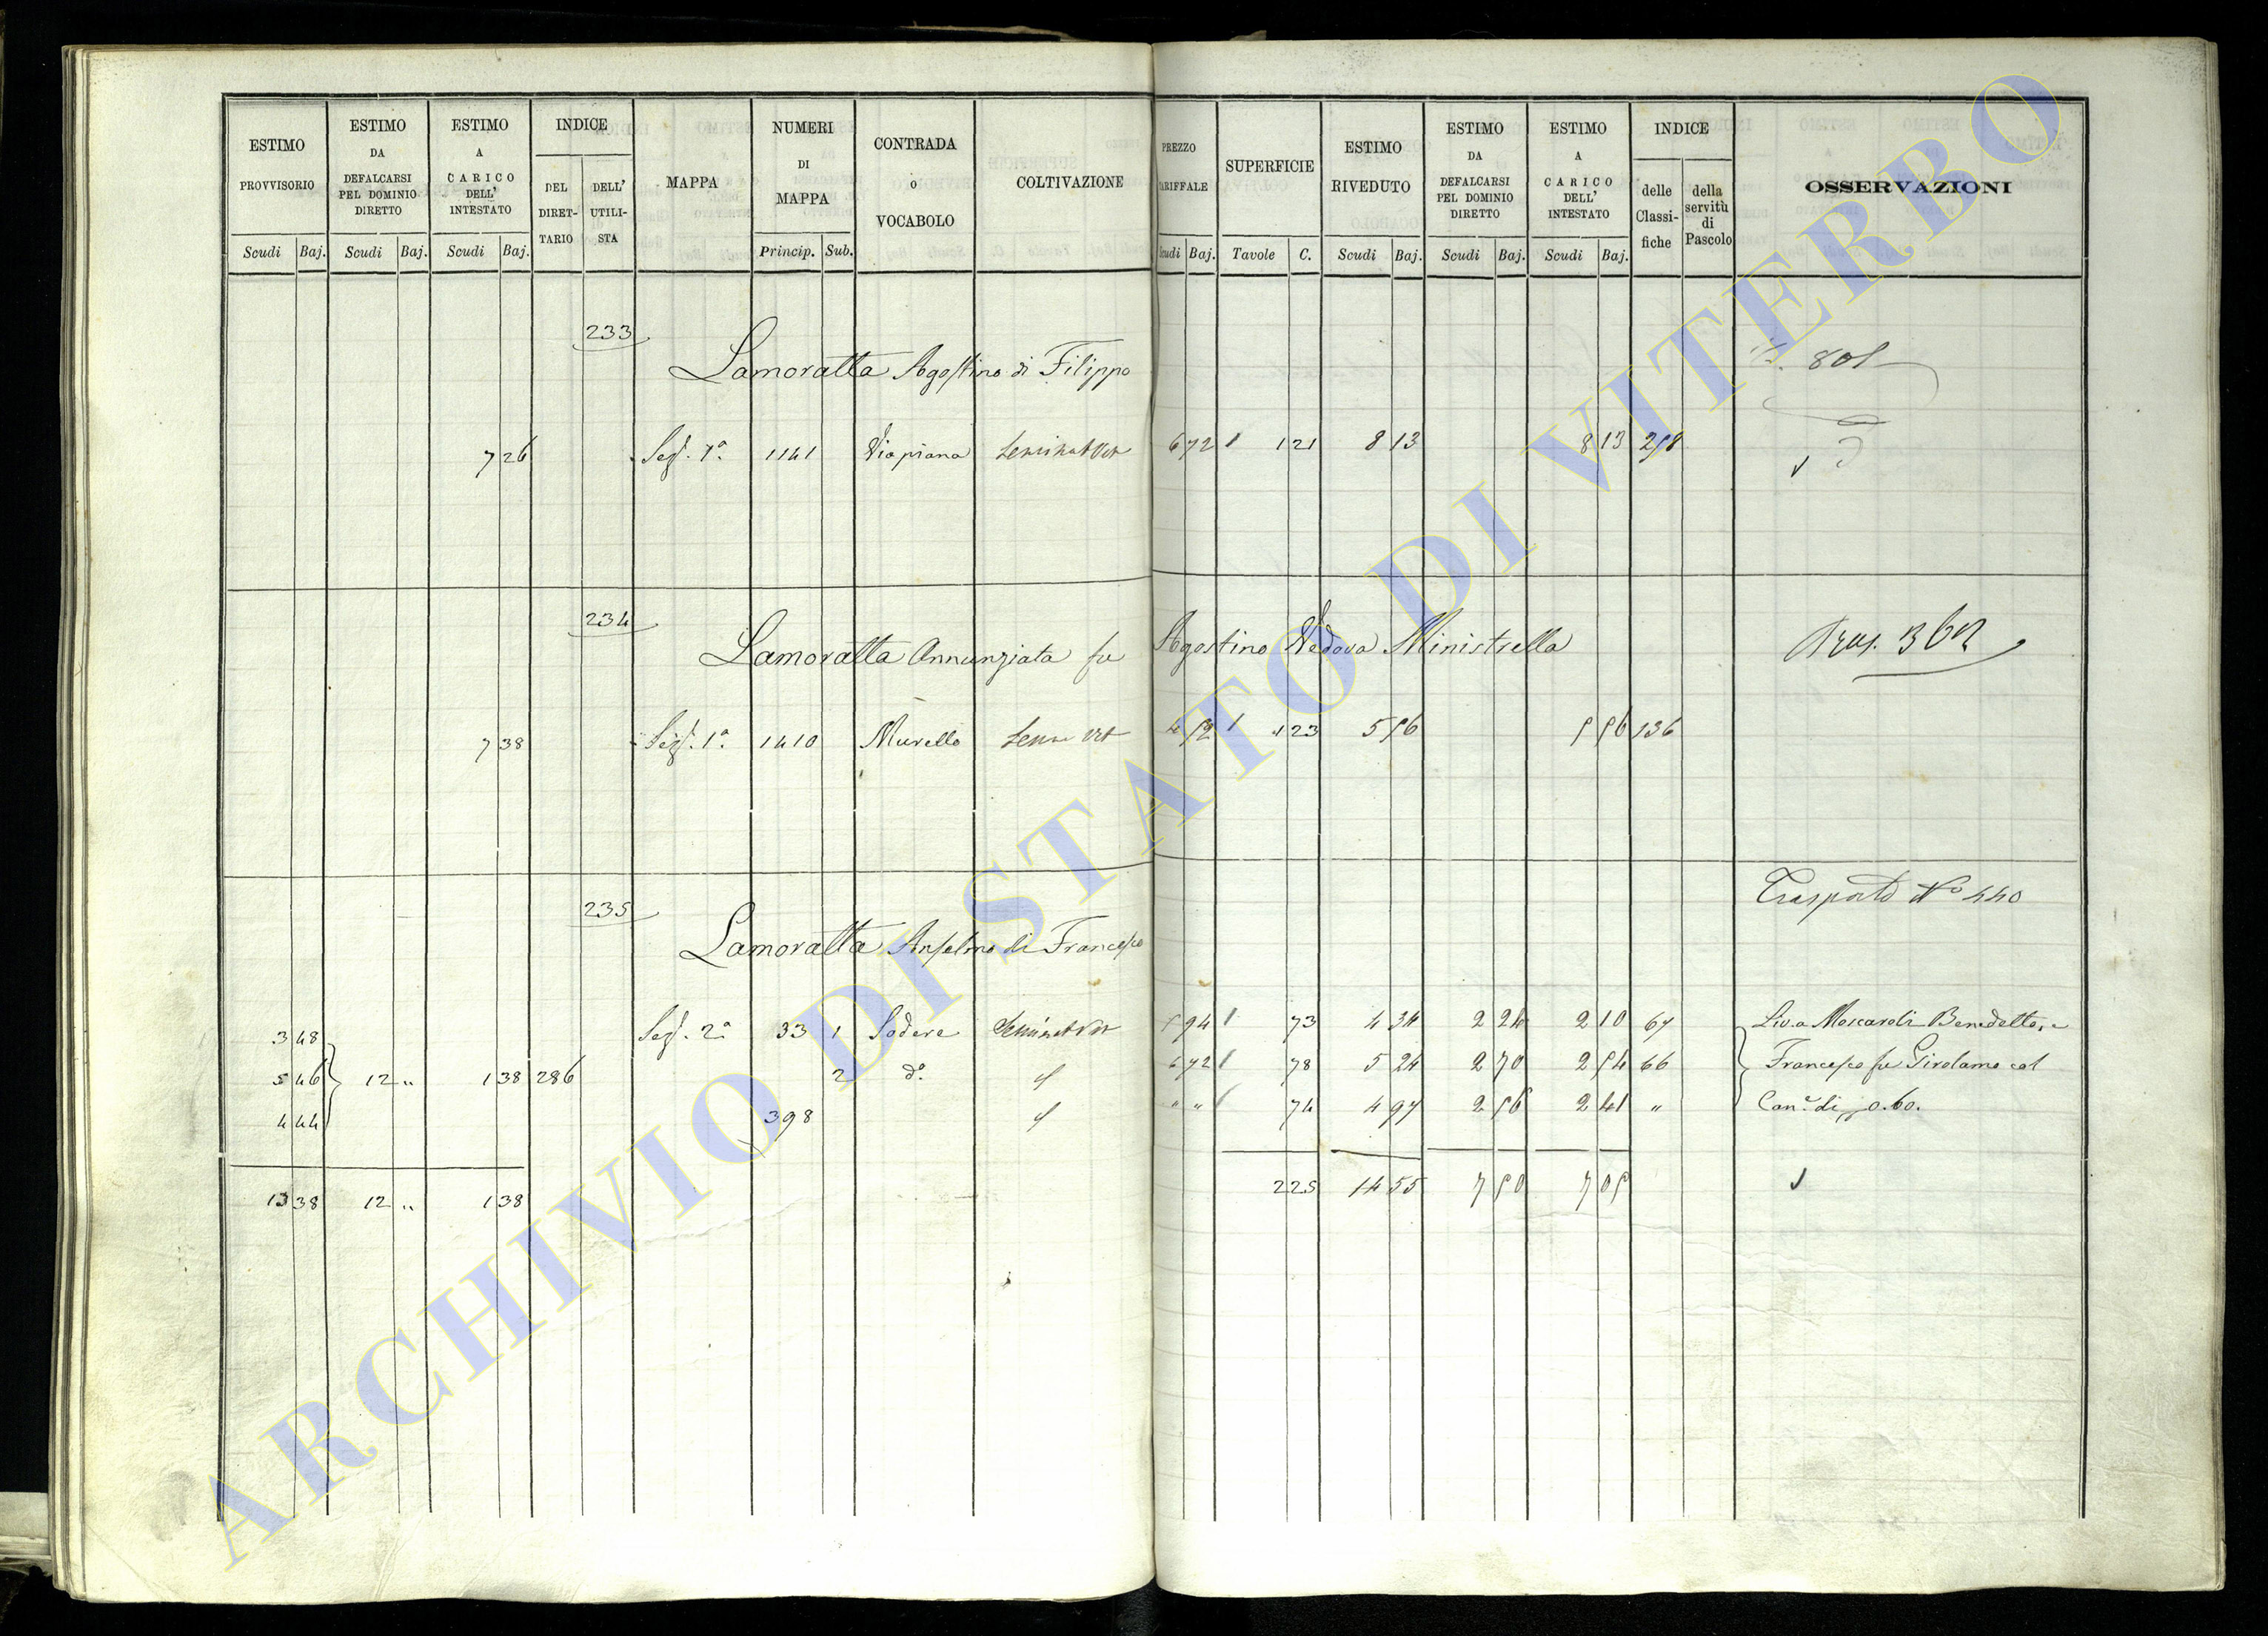 ESTIMO PROVVISORIO Scudi Baj.
ESTIMO DA DEFALCARSI PEL DOMINIO DIRETTO Scudi Baj.
ESTIMO A CARICO DELL' INTESTATO Scudi Baj.
INDICE DEL DIRET-TARIO DELL' UTILI-STA
MAPPA
NUMERI DI MAPPA Princip. Sub.
CONTRADA o VOCABOLO
COLTIVAZIONE
PREZZO TARIFFALE Scudi Baj.
SUPERFICIE Tavole C.
ESTIMO RIVEDUTO Scudi Baj.
ESTIMO DA DEFALCARSI PEL DOMINIO DIRETTO Scudi Baj.
ESTIMO A CARICO DELL' INTESTATO Scudi Baj.
INDICE delle Classi-fiche della servitù di Pascolo
OSSERVAZIONI
233
Lamoratta Agostino di Filippo
801
7 26 Sez. 1ª 1141 Viapiana 6 72 1 21 8 13 8 13 258
234
Lamoratta Annunziata fu Agostino Vedova Ministrella
Tras. 362
7 38 Sez. 1ª 1410 Murello 4 52 1 23 5 56 5 56 136
235
Trasporto Nº 440
Lamoratta Anselmo di Francesco
3 48 Sez. 2ª 33 1 Sodere 5 94 73 4 34 2 24 2 10 67 Liv. a Moscaroli Benedetto, e
5 46 12 " 1 38 286 2 dº 6 72 78 5 24 2 70 2 54 66 Francesco fu Girolamo col
4 44 398 " " 74 4 97 2 56 2 41 " Canº di 0.60.
13 38 12 " 1 38 2 25 14 55 7 50 7 05
ARCHIVIO DI STATO DI VITERBO